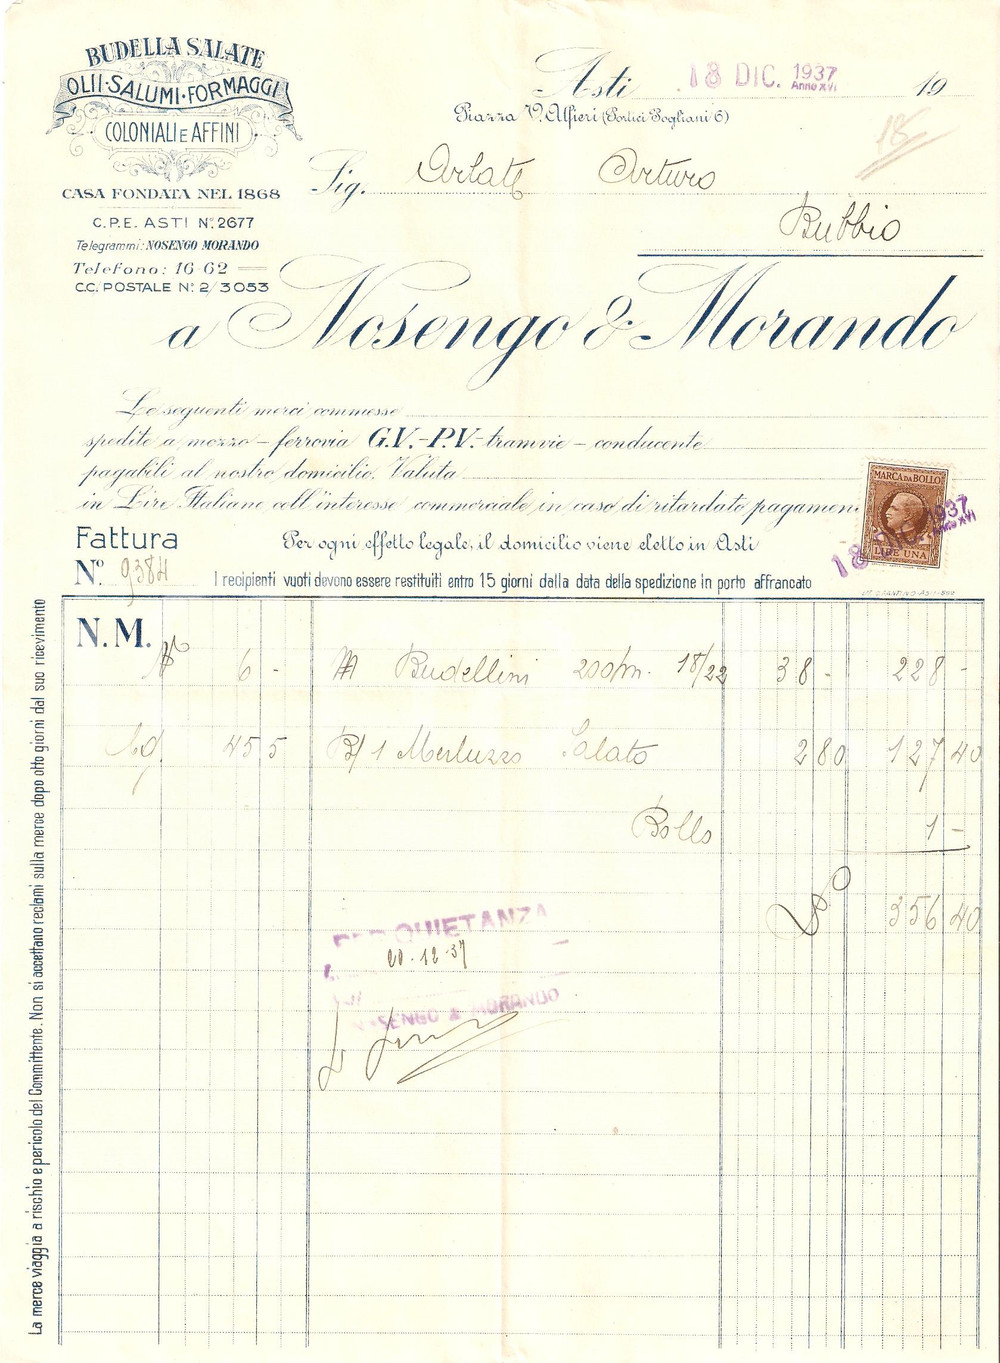 BUDELLA SALATE
OLII·SALUMI·FORMAGGI
COLONIALI E AFFINI
CASA FONDATA NEL 1868
C.P.E. ASTI Nº 2677
Telegrammi: NOSENGO MORANDO
Telefono: 16-62
C.C. POSTALE Nº 2/3053
Asti 18 DIC. 1937 19
Anno XVI
Piazza V. Alfieri (Portici Pogliani 6)
Sig. Arlate Arturo
Bubbio
a Nosengo & Morando
Le seguenti merci commesse
spedite a mezzo - ferrovia G.V.-P.V.- tramvie - conducente
pagabili al nostro domicilio. Valuta
in Lire Italiane coll'interesse commerciale in caso di ritardato pagamen
MARCA DA BOLLO
LIRE UNA
18 DIC. 1937
Anno XVI
Fattura
Per ogni effetto legale, il domicilio viene eletto in Asti
Nº 9384
I recipienti vuoti devono essere restituiti entro 15 giorni dalla data della spedizione in porto affrancato
N.M.
Nº 6 - M Budellini 200/m. 18/22 38 - 228 -
Kg. 45 5 B/1 Merluzzo Salato 2 80 127 40
Bollo 1 -
356 40
PER QUIETANZA
20-12-37
NOSENGO & MORANDO
La merce viaggia a rischio e pericolo del Committente. Non si accettano reclami sulla merce dopo otto giorni dal suo ricevimento